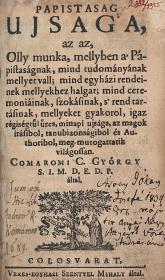 PAPISTASAG
UJSAGA,
az az,
Olly munka, mellyben a' Pá-
pistaságnak, mind tudományának
mellyet vall; mind egyházi rende-
nek mellyekhez halgat; mind cere-
moniáinak, szokásinak, s' rend tar-
tásinak, mellyeket gyakorol, igaz
régiségtül üres, minapi ujsága, az magok
irásibol, tanubizonságibol és Au-
thoribol, meg-mutogattatik
világosson.
COMAROMI C. GYÖRGY
S. I. M. D. E. D. P.
által,
COLOSVARAT,
VERES-EGYHAZI SZENTYEL MIHALY által,